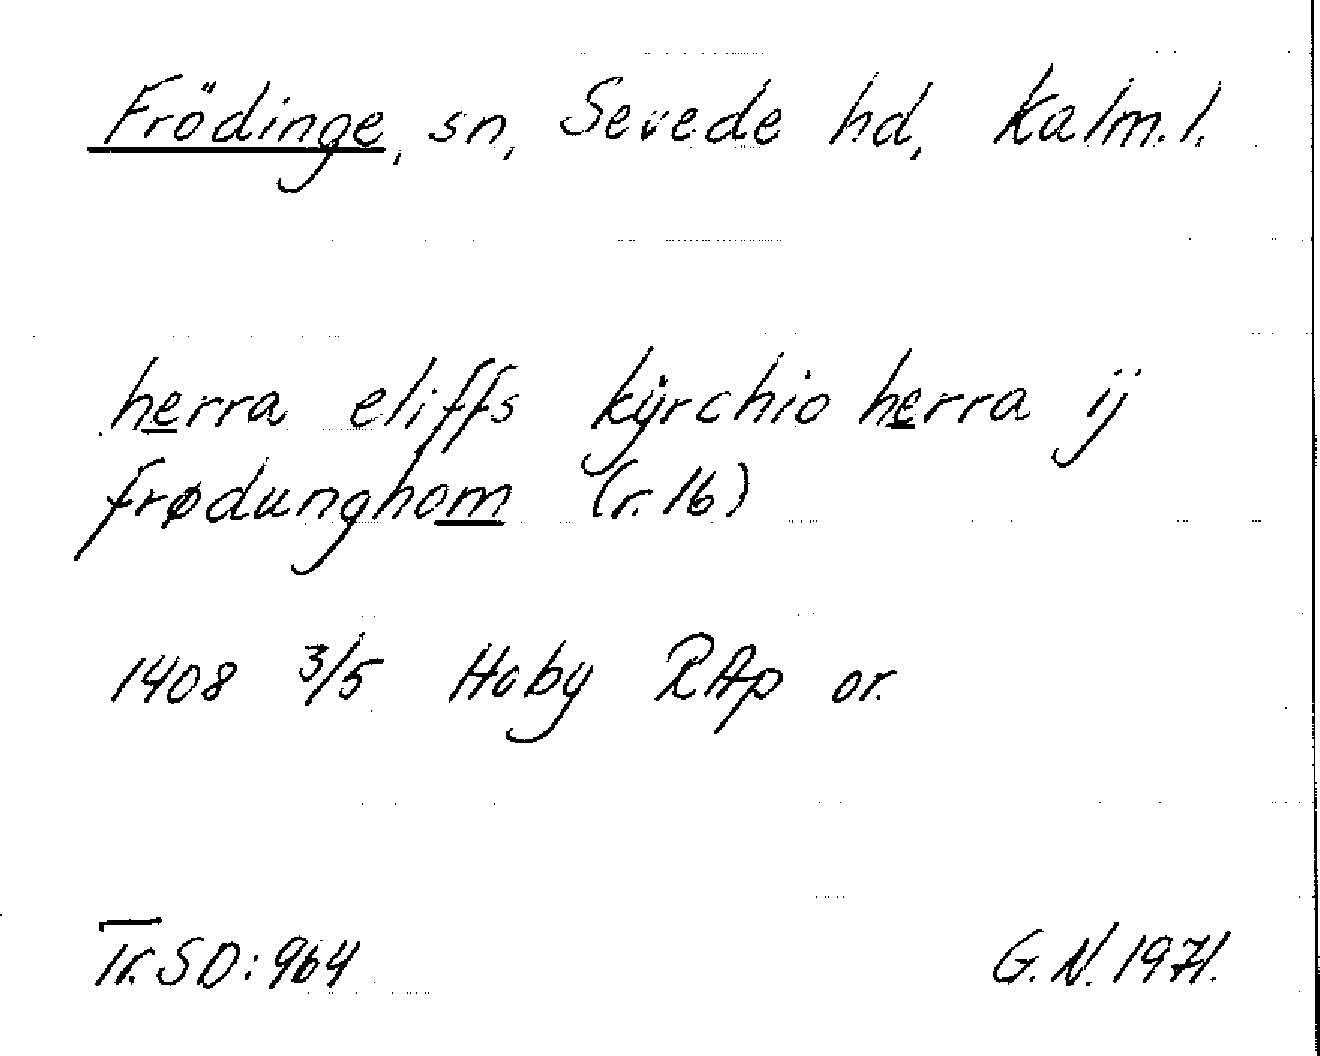 Frödinge, sn, Sevede hd, Kalm.l.
herra eliffs kÿrchio herra ij
frødunghom (r.16)
1408 3/5 Hoby RAp or.
Tr. SD: 964 G.N. 1971.